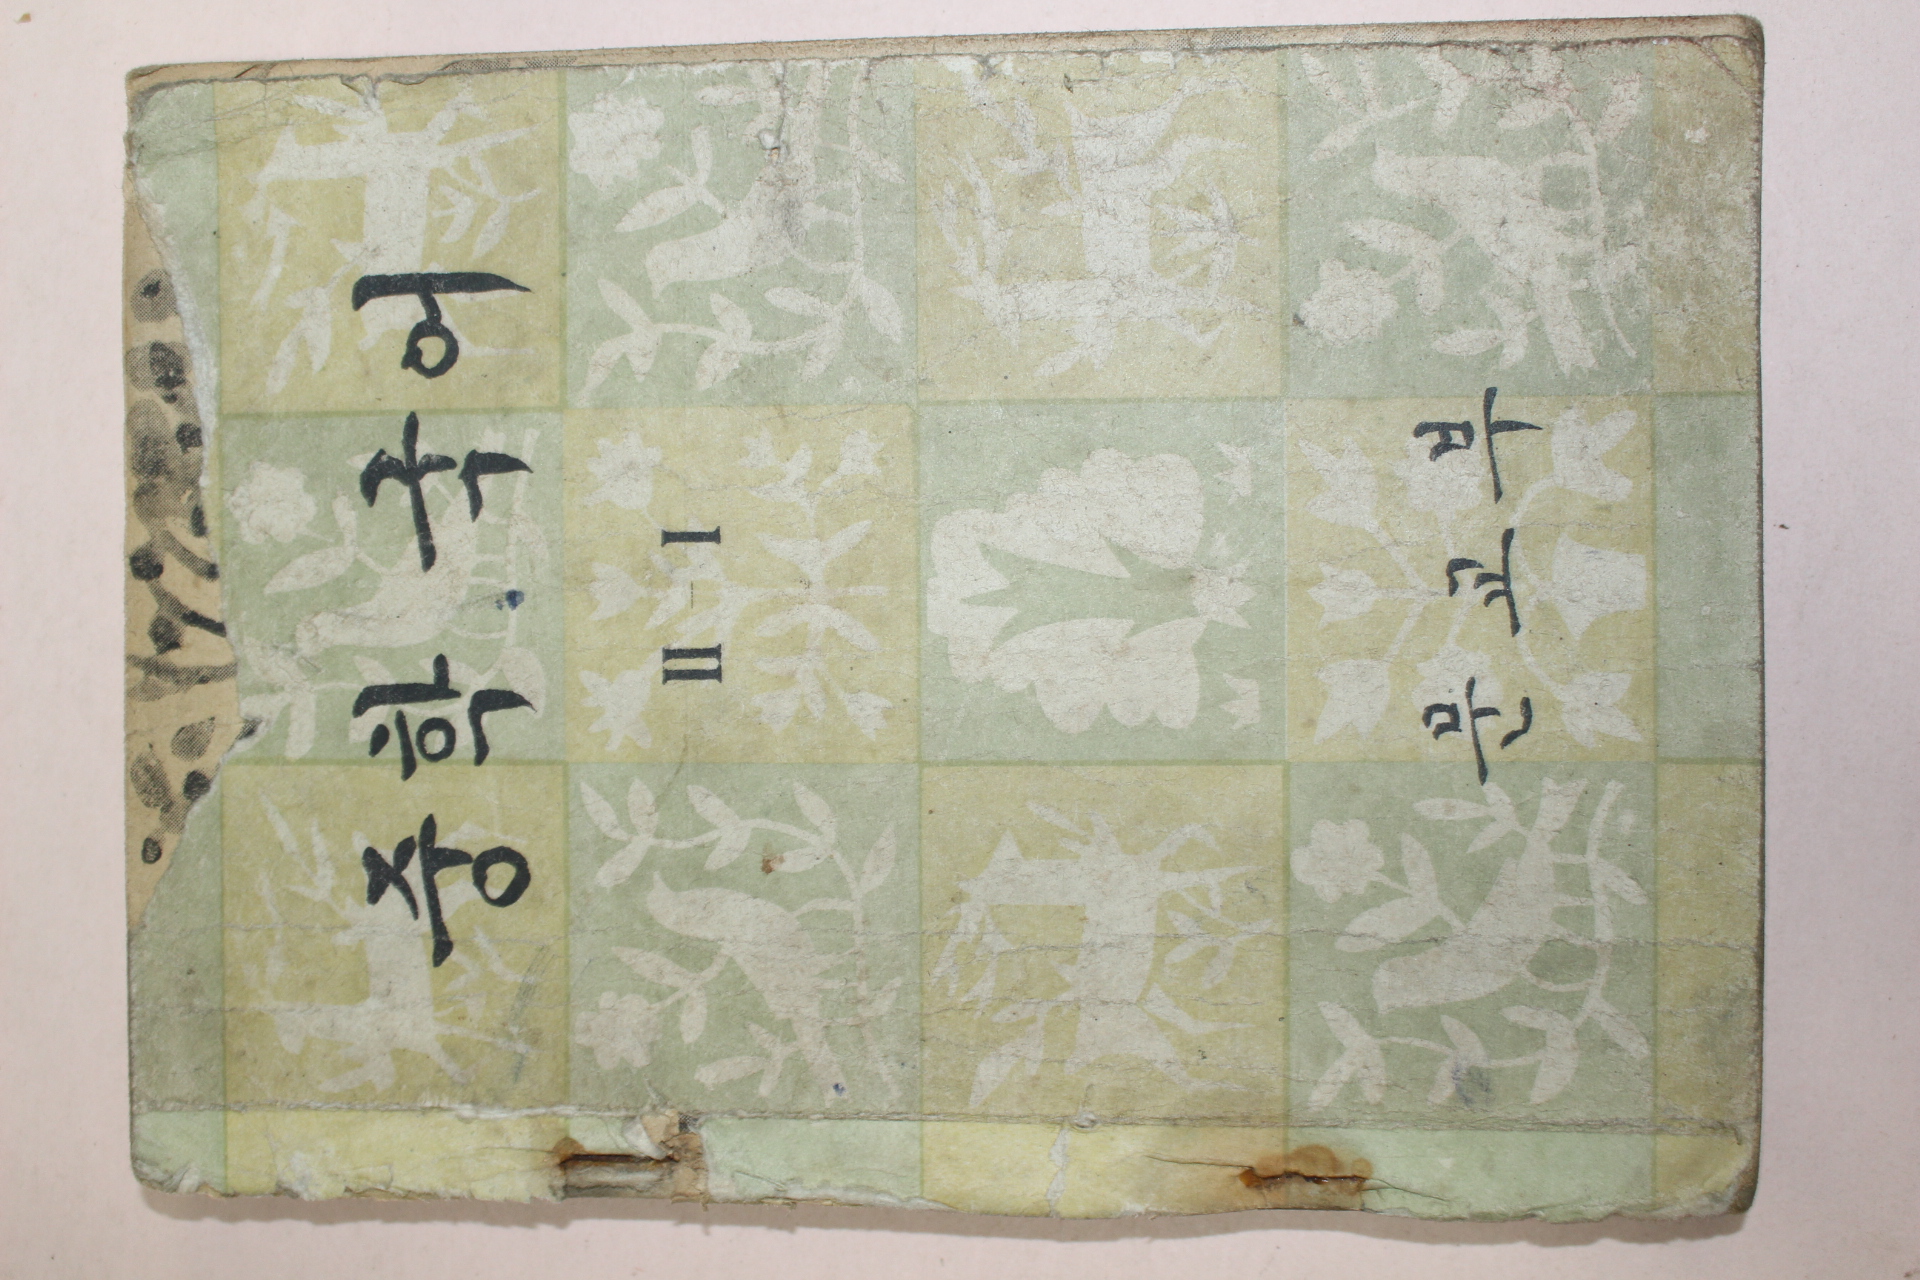 중학국어
II-I
문교부